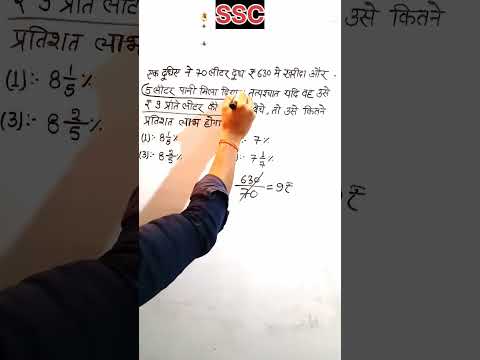 SSC
₹ 9 प्रति लीटर की
उसे कितने
प्रतिशत लाभ
(1):- 8 1/5 %
(3):- 8 2/5 %
एक दूधिए ने 70 लीटर दूध ₹ 630 में खरीदा और
5 लीटर पानी मिला दिया। तत्पश्चात यदि वह उसे
₹ 9 प्रति लीटर की बेचे, तो उसे कितने
प्रतिशत लाभ होगा
(1):- 8 1/5 %
:- 7 %
(3):- 8 2/5 %
:- 7 1/7 %
630/70 = 9₹